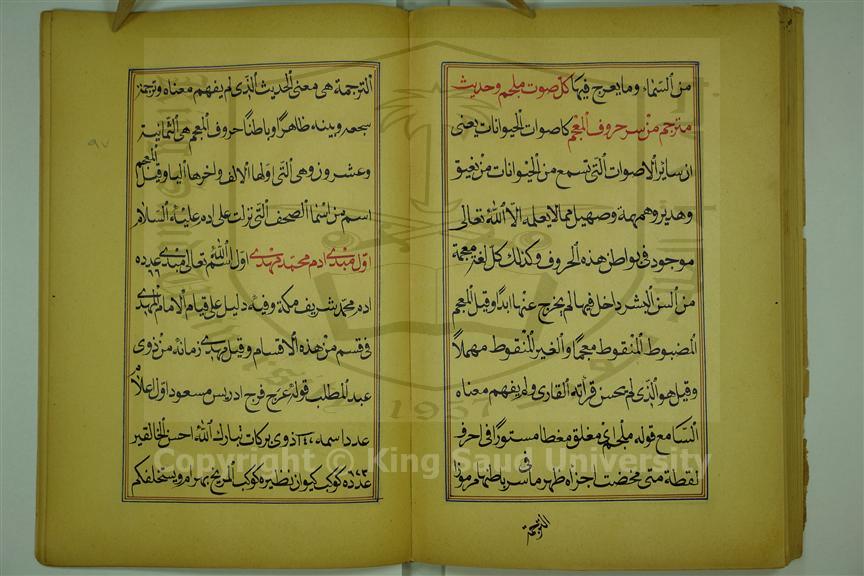 من السماء وما يعرج فيها كل صوت ملجم وحديث
مترجم من سر حروف المعجم كاصوات الحيوانات يعنى
ان ساير الاصوات التى تسمع من الحيوانات من نعيق
وهدير وهمهمة وصهيل مما لا يعلمه الا الله تعالى
موجود فى بواطن هذه الحروف وكذلك كل لغة معجمة
من السن البشر داخل فيها لم يخرج عنها ابدا وقيل المعجم
المضبوط المنقوط معجما والغير المنقوط مهملاً
وقيل هو الذى لم يحسن قرأته القارى ولم يفهم معناه
السامع قوله ملجم اى مغلق مغطا مستورا فى احرف
نقطة متى مخضت اجزاه ظهر ما سر باطنها مرموزا
فى
الترجمة
الترجمة هى معنى الحديث الذى لم يفهم معناه وترجمة
وبينه ظاهرا وباطنا حروف المعجم هى الثمانية
وعشرون وهى التى اولها الالف واخرها اليا وقيل المعجم
اسم من اسما الصحف التى نزلت على ادم عليه السلام
اول مبتدى ادم محمد مهدى اول اسم الله تعالى مبتدى عدده
ادم محمد شريف مكة وفيه دليل على قيام الامام المهدى
فى قسم من هذه الاقسام وقيل مهدى زمانه من ذوى
عبد المطلب قوله عرج فرج ادريس مسعود اول علام
عدد اسمه ذوى بركات تبارك الله احسن الخالقين
عدده كوكب كيوان نظيره كوكب المريخ بهرام ويستخلفكم
٩٧
Copyright © King Saud University
1957